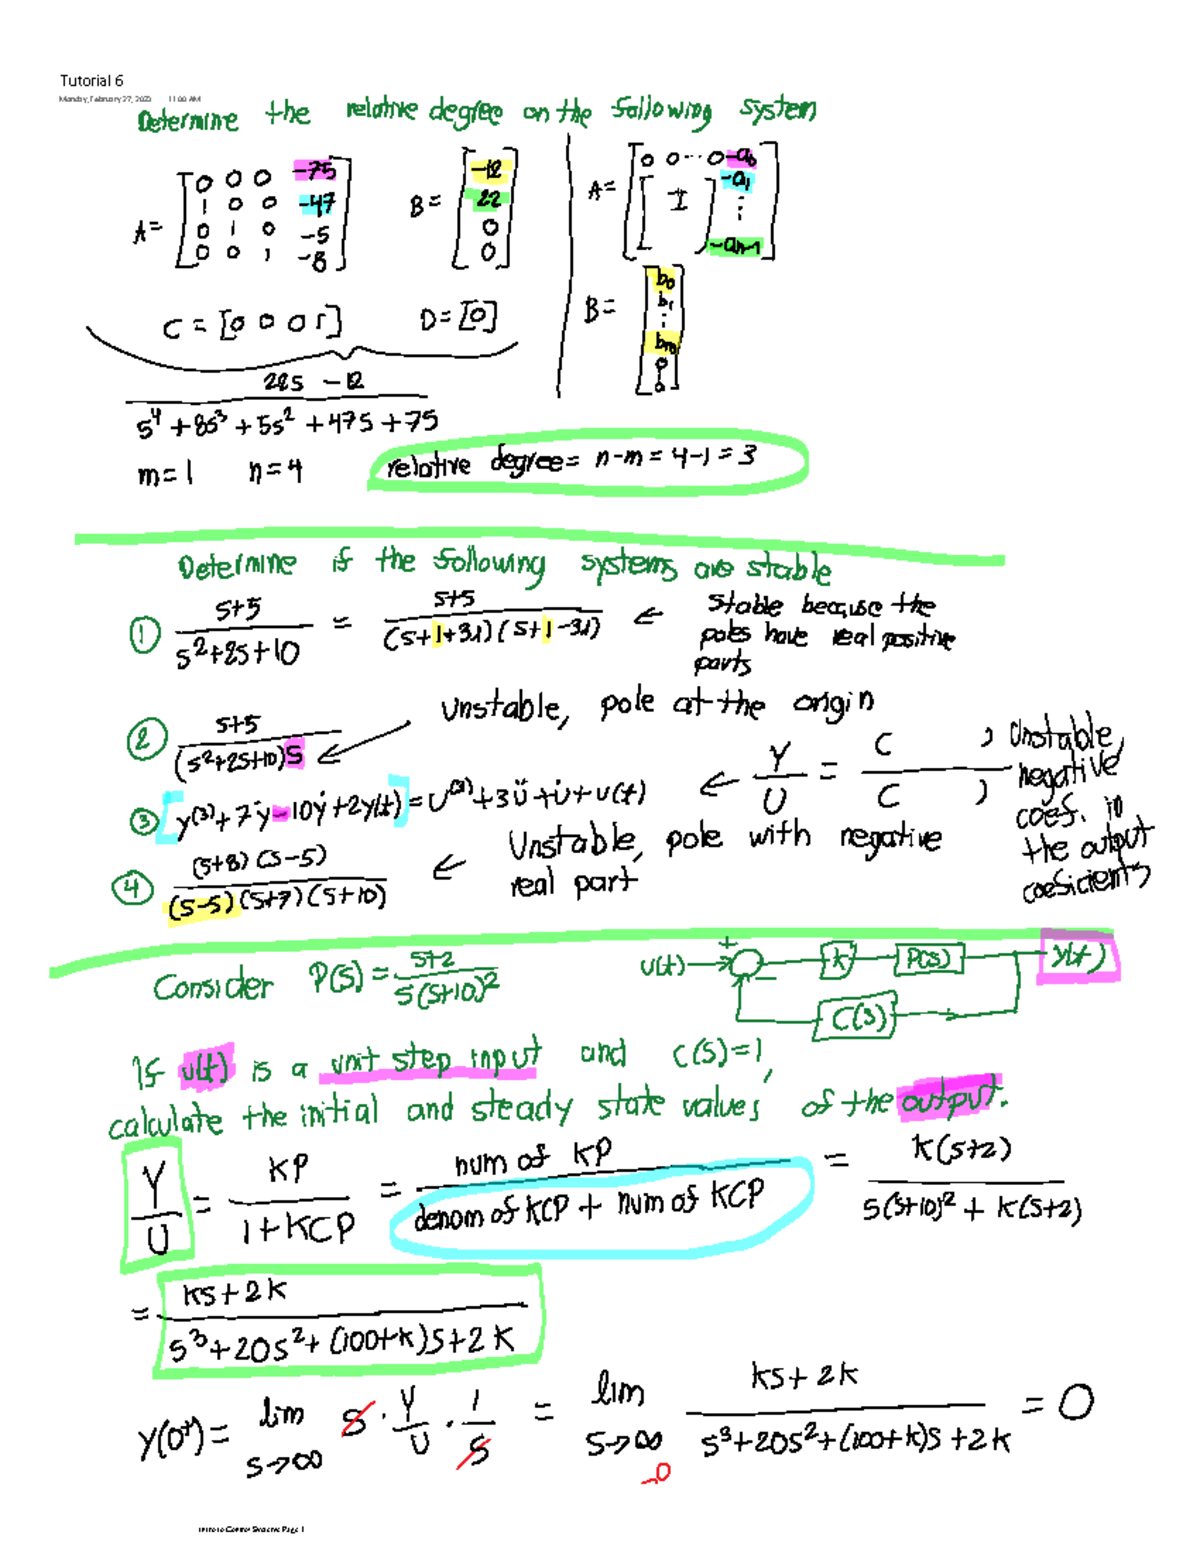 Tutorial 6
Monday, February 27, 2023 11:00 AM
Determine the relative degree on the following system
A = [0 0 0 -75
1 0 0 -47
0 1 0 -5
0 0 1 -8]
B = [-12
22
0
0]
C = [0 0 0 1] D = [0]
A = [0 0 ... 0 -a0
[ I ] -a1
⋮
-an-1]
B = [b0
b1
⋮
bm
0
0]
22s - 12
s^4 + 8s^3 + 5s^2 + 47s + 75
m = 1 n = 4 relative degree = n-m = 4-1 = 3
Determine if the following systems are stable
① (s+5)/(s^2+2s+10) = (s+5)/((s+1+3i)(s+1-3i)) ← Stable because the
poles have real positive
parts
② (s+5)/((s^2+2s+10)s) ← Unstable, pole at the origin
③ [y^(3) + 7ÿ - 10ẏ + 2y(t)] = u^(3) + 3ü + u̇ + u(t) ← Y/U = ( )/( ) Unstable,
negative
coef. in
the output
coefficients
④ ((s+8)(s-5))/((s-5)(s+7)(s+10)) ← Unstable, pole with negative
real part
Consider P(s) = (s+2)/(s(s+10)^2)
u(t) → + - k P(s) y(t)
C(s)
If u(t) is a unit step input and C(s)=1,
calculate the initial and steady state values of the output.
Y/U = KP/(1+KCP) = (num of KP)/(denom of KCP + num of KCP) = K(s+2)/(s(s+10)^2 + K(s+2))
= (Ks+2K)/(s^3+20s^2+(100+K)s+2K)
y(0+) = lim s→∞ s · Y/U · 1/s = lim s→∞ (Ks+2K)/(s^3+20s^2+(100+K)s+2K) = 0
→0
Intro to Control Systems Page 1